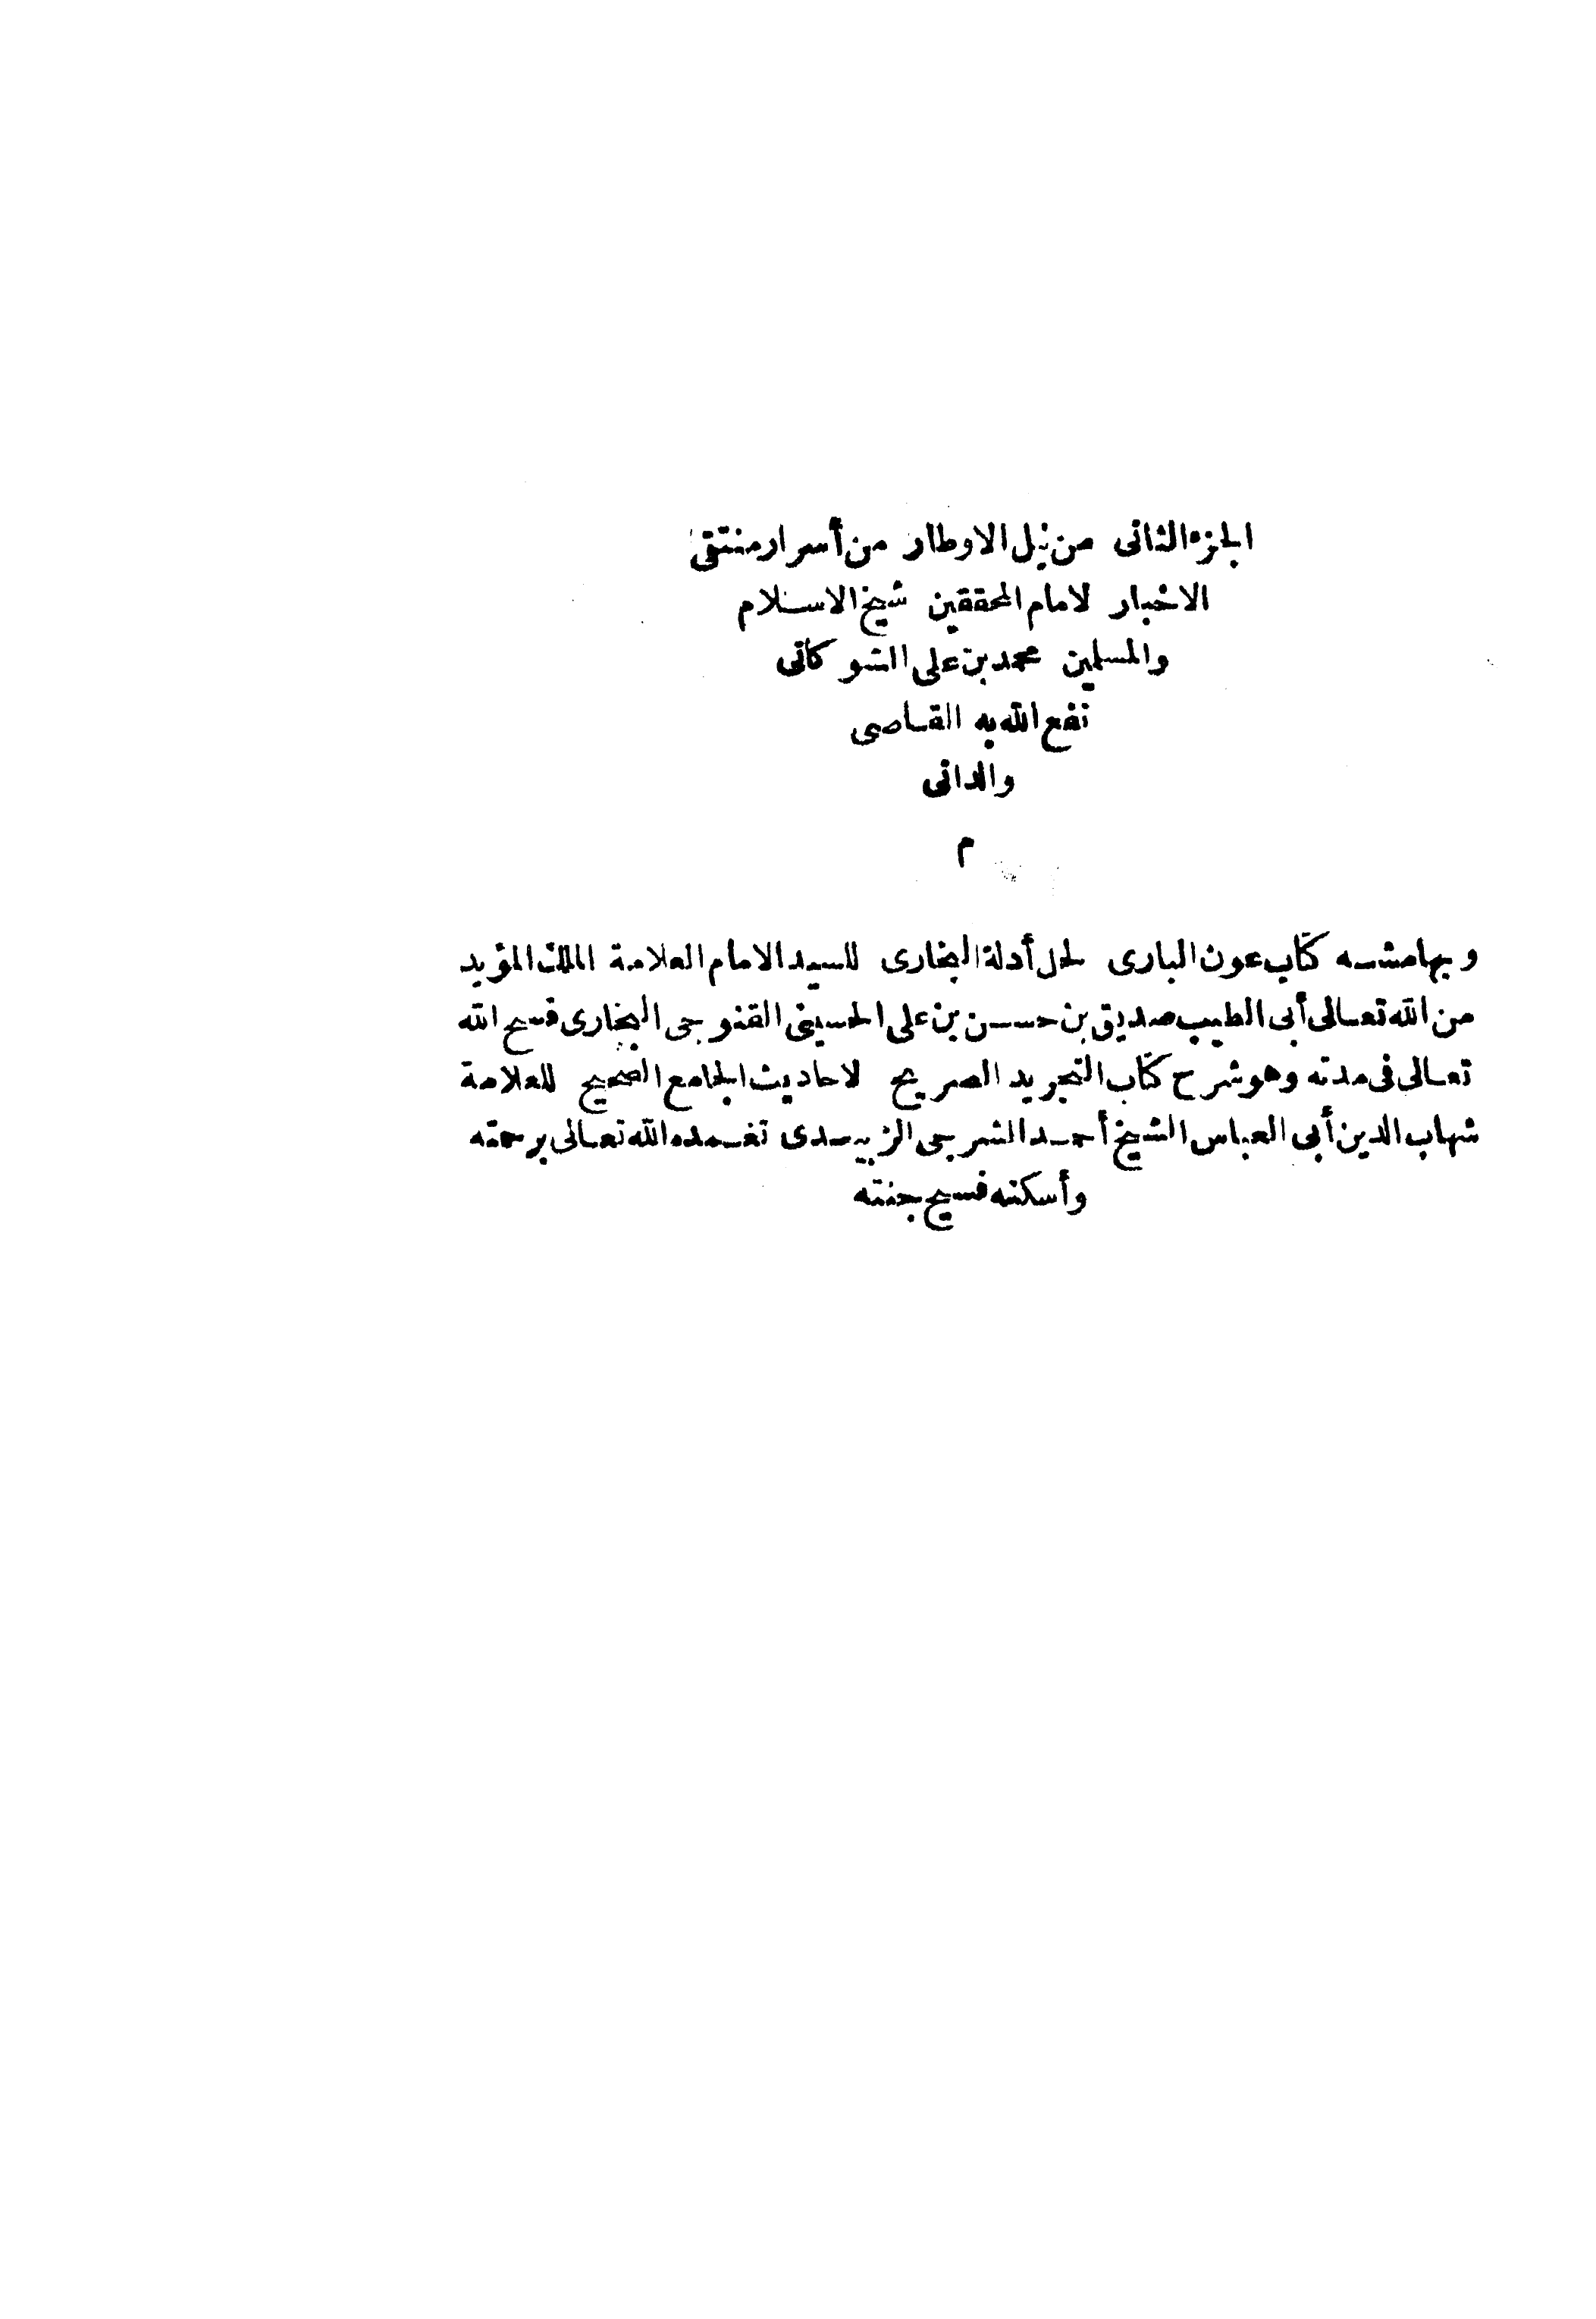 الجزء الثانى من نيل الاوطار من أسرار منتقى
الاخبار لامام المحققين شيخ الاسلام
والمسلمين محمد بن على الشوكانى
نفع الله به القاصى
والدانى
م
وبهامشه كتاب عون البارى لحل أدلة البخارى للسيد الامام العلامة الملك المؤيد
من الله تعالى أبى الطيب صديق بن حسن بن على الحسينى القنوجى البخارى فسح الله
تعالى فى مدته وهو شرح كتاب التجريد الصريح لاحاديث الجامع الصحيح للعلامة
شهاب الدين أبى العباس الشيخ أحمد الشرجى الزبيدى تغمده الله تعالى برحمته
وأسكنه فسيح جنته